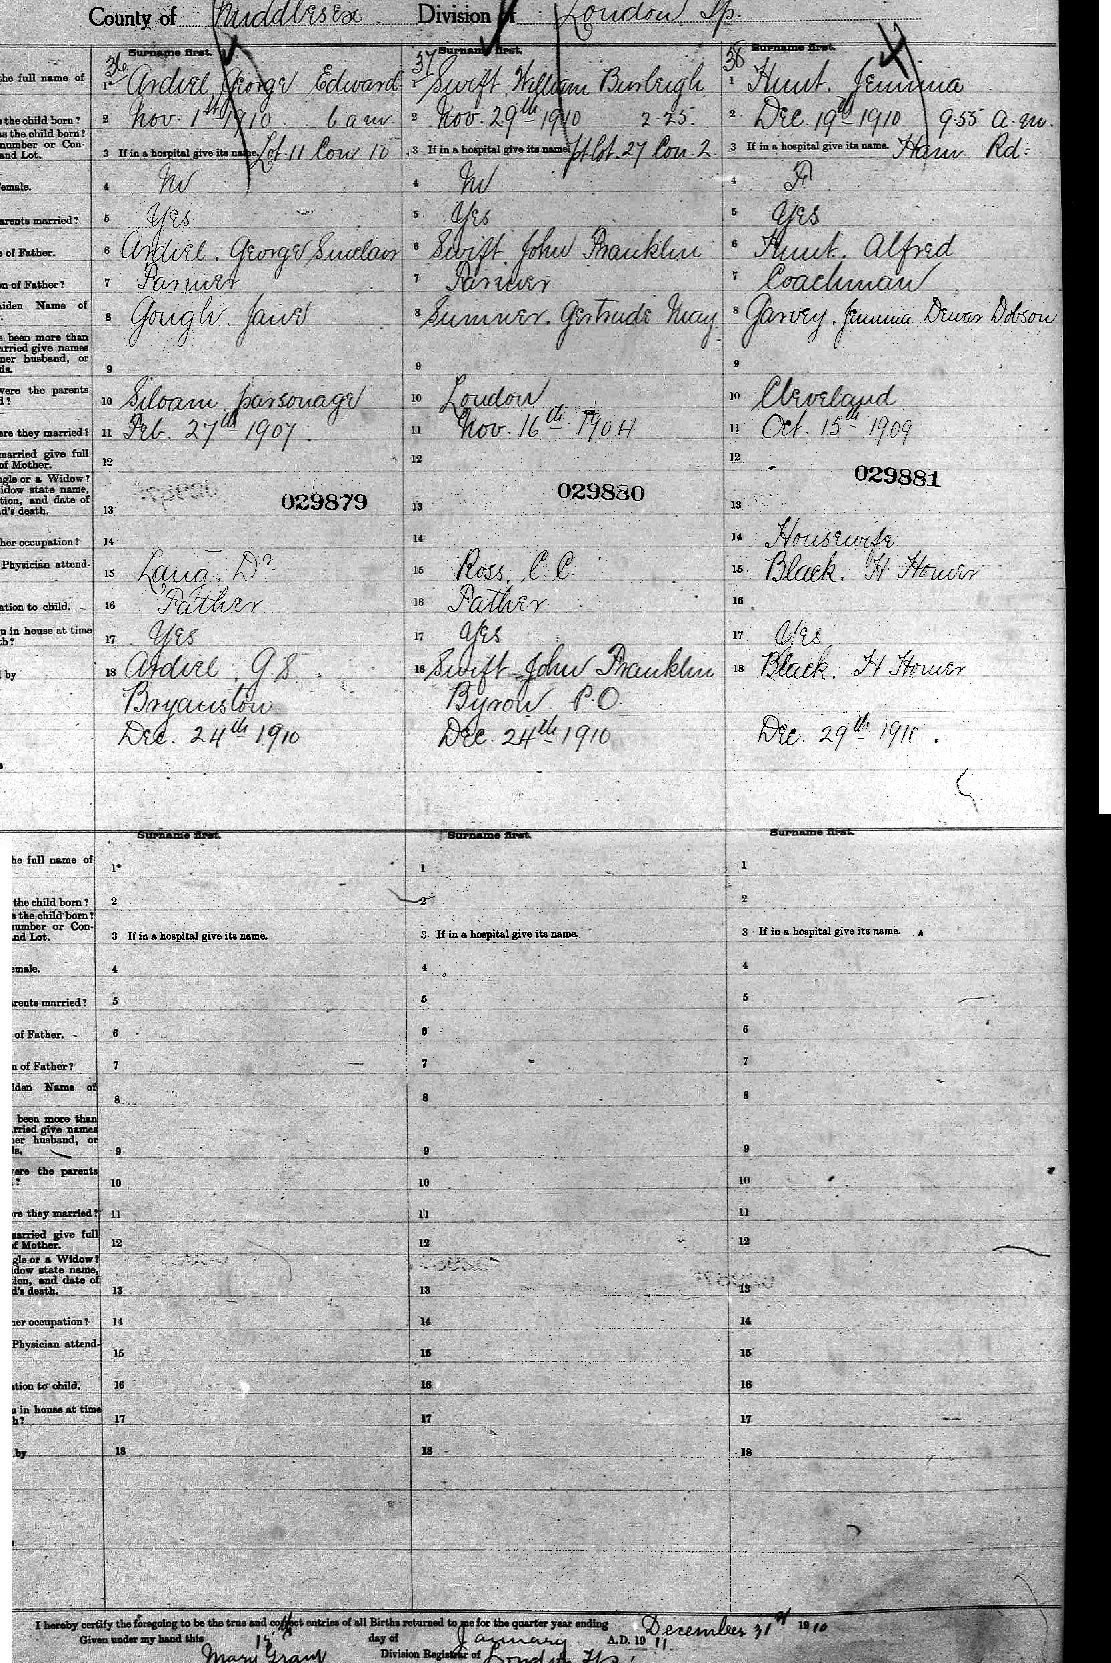 County of Middlesex Division of London Tp.
Surname first. Surname first. Surname first.
36 37 38
the full name of 1 Ardiel George Edward 1 Swift William Burleigh 1 Hunt. Jemima
s the child born? 2 Nov. 1st 1910 6 am 2 Nov. 29th 1910 2-25. 2 Dec 19th 1910 9-55 a.m.
as the child born?
number or Con-
and Lot. 3 If in a hospital give its name. Lot 11 Con 3 If in a hospital give its name. pt Lot. 27 Con. 2. 3 If in a hospital give its name. Ham Rd.
emale. 4 M 4 M 4 F
arents married? 5 Yes 5 Yes 5 Yes
e of Father. 6 Ardiel. George Sinclair 6 Swift. John Franklin 6 Hunt. Alfred
n of Father? 7 Farmer 7 Farmer 7 Coachman
aiden Name of 8 Gough. Jane 8 Sumner. Gertrude May 8 Garvey. Jemima Dewar Dobson
s been more than
arried give names
her husband, or
ds. 9 9 9
were the parents
d? 10 Siloam parsonage 10 London 10 Cleveland
ere they married? 11 Feb. 27th 1907. 11 Nov. 16th 1904 11 Oct. 15th 1909
married give full
of Mother. 12 12 12
ngle or a Widow?
idow state name,
tion, and date of
d's death. 13 029879 13 029880 13 029881
her occupation? 14 14 14 Housewife
Physician attend- 15 15 Ross. C. C. 15 Black. H Homer
ation to child. 16 Father 16 Father 16
n in house at time
h? 17 Yes 17 Yes 17 Yes
by 18 Ardiel. G S 18 Swift John Franklin 18 Black. H Homer
Bryanston Byron P.O.
Dec. 24th 1910 Dec. 24th 1910 Dec. 29th 1910.
Surname first. Surname first. Surname first.
he full name of 1 1 1
the child born? 2 2 2
s the child born?
number or Con-
nd Lot. 3 If in a hospital give its name. 3 If in a hospital give its name. 3 If in a hospital give its name.
emale. 4 4 4
rents married? 5 5 5
of Father. 6 6 6
n of Father? 7 7 7
iden Name of 8 8 8
been more than
rried give names
er husband, or
ls. 9 9 9
ere the parents
? 10 10 10
re they married? 11 11 11
arried give full
f Mother. 12 12 12
gle or a Widow?
dow state name,
ion, and date of
d's death. 13 13 13
er occupation? 14 14 14
Physician attend- 15 15 15
tion to child. 16 16 16
n in house at time
h? 17 17 17
by 18 18 18
I hereby certify the foregoing to be the true and correct entries of all Births returned to me for the quarter year ending December 31st 1910
Given under my hand this day of January A.D. 1911.
Mary Grant Division Registrar of London Tp.